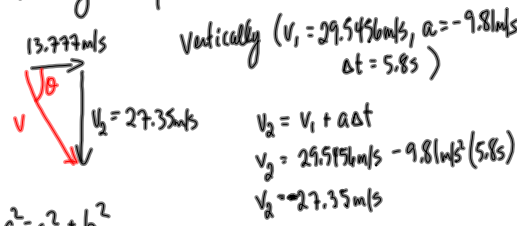 13.777m/s
θ
V
V₂ = 27.35m/s
Vertically (V₁ = 29.5456m/s, a = -9.81m/s
Δt = 5.8s )
V₂ = V₁ + aΔt
V₂ = 29.5456m/s - 9.81m/s² (5.8s)
V₂ = -27.35m/s